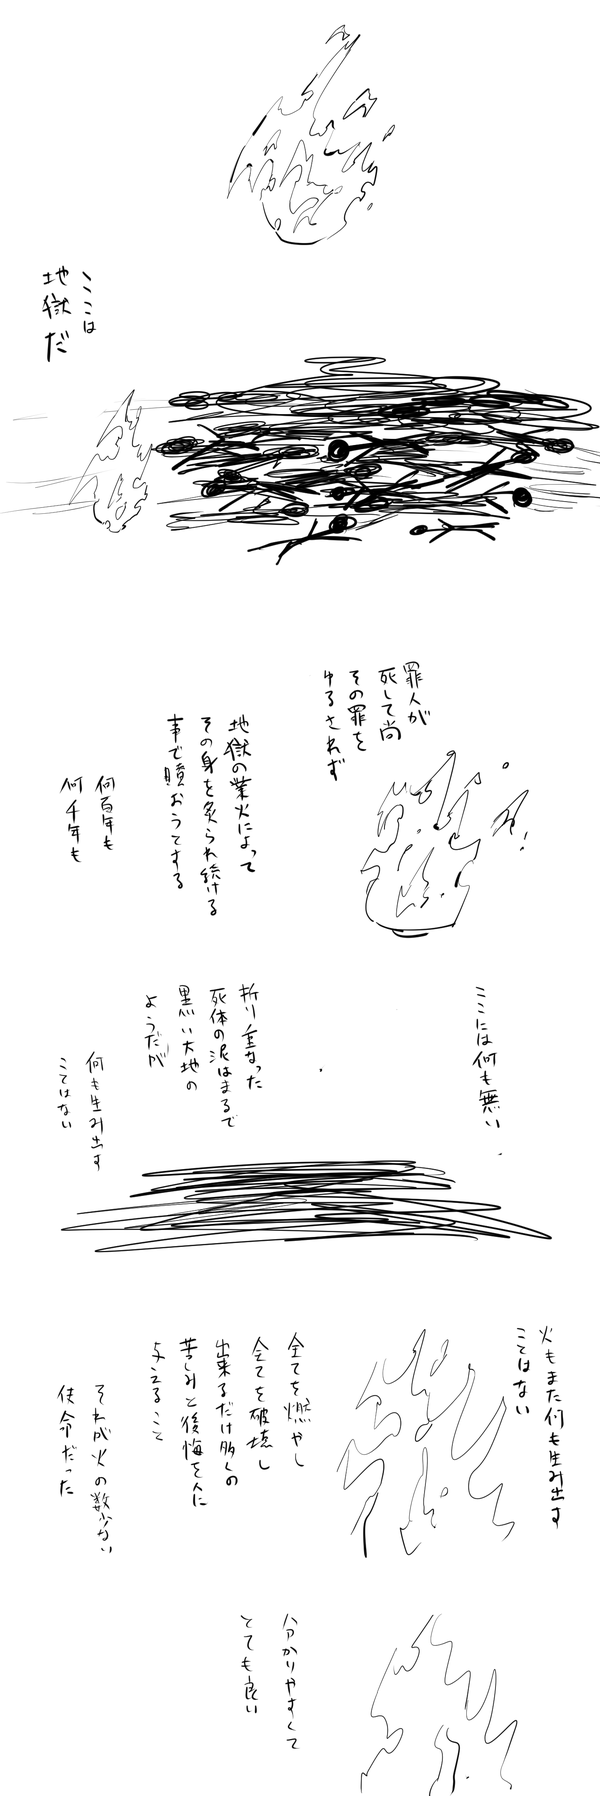 ここは
地獄だ
罪人が
死して尚
その罪を
ゆるされず
地獄の業火によって
その身を炙られ続ける
事で贖おうてする
何百年も
何千年も
ここには何も無い
折り重なった
死体の泥はまるで
黒い大地の
ようだが
何も生み出す
ことはない
火もまた何も生み出す
ことはない
全てを燃やし
全てを破壊し
出来るだけ多くの
苦しみと後悔を人に
与えること
それが火の数少ない
使命だった
分かりやすくて
とても良い